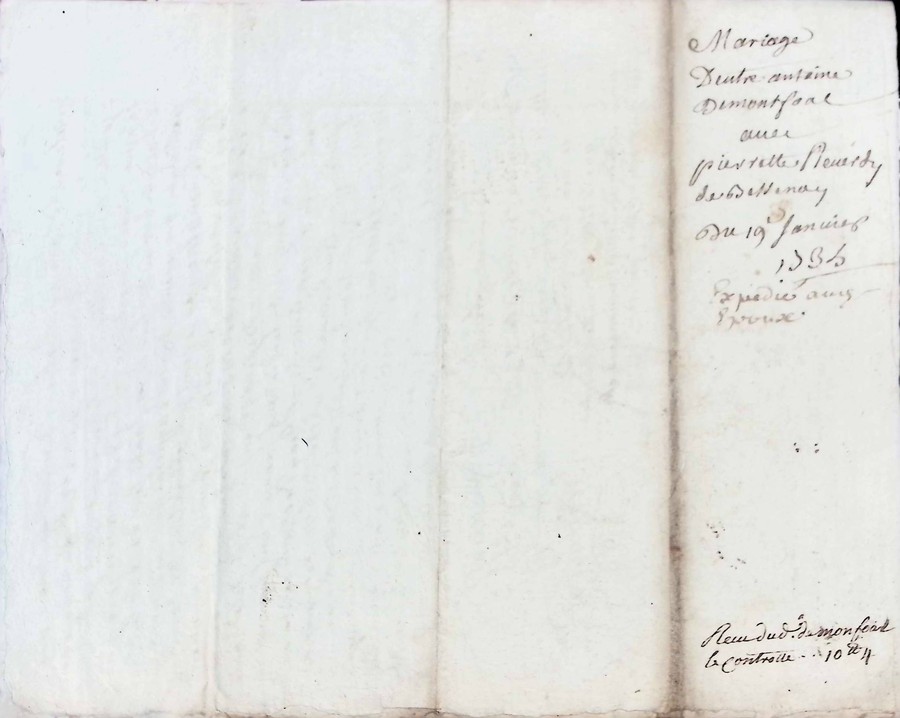 Mariage
Dentre antoine
Demontferat
avec
pierrette Reverdy
de Bessenay
Du 19e Janvier
1735
Expedié aux
Epoux
Receu dud. demonferat
le Controlle .. 10tt 4